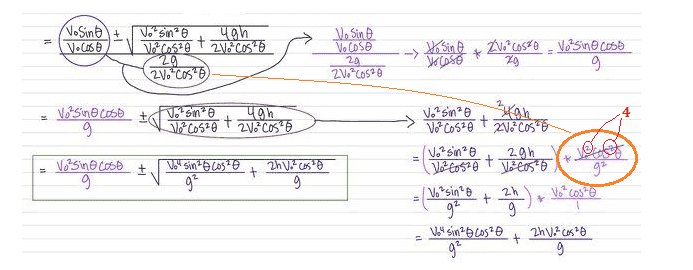 = V₀sinθ/V₀cosθ ± √(V₀²sin²θ/V₀²cos²θ + 4gh/2V₀²cos²θ) / (2g/2V₀²cos²θ) → (V₀sinθ/V₀cosθ)/(2g/2V₀²cos²θ) → V₀sinθ/V₀cosθ * 2V₀²cos²θ/2g = V₀²sinθcosθ/g
= V₀²sinθcosθ/g ± √(V₀²sin²θ/V₀²cos²θ + 4gh/2V₀²cos²θ) → V₀²sin²θ/V₀²cos²θ + ²4gh/2V₀²cos²θ 4
= (V₀²sin²θ/V₀²cos²θ + 2gh/V₀²cos²θ) * V₀²cos²θ/g²
= V₀²sinθcosθ/g ± √(V₀⁴sin²θcos²θ/g² + 2hV₀²cos²θ/g)
= (V₀²sin²θ/g² + 2h/g) * V₀²cos²θ/1
= V₀⁴sin²θcos²θ/g² + 2hV₀²cos²θ/g